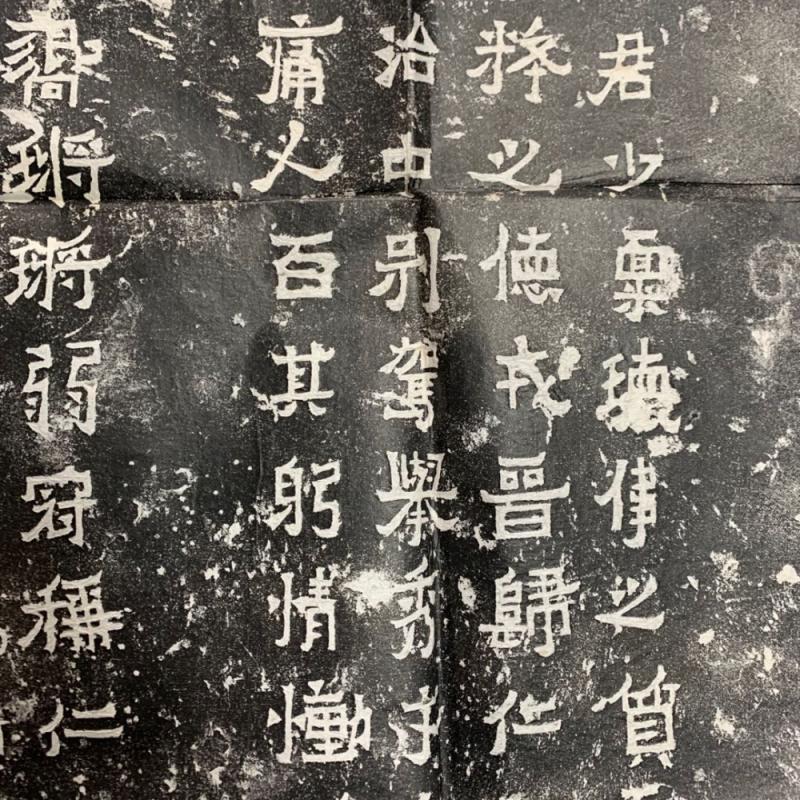 君少稟瓌偉之質
粹之德戎晉歸仁
治中别駕舉秀才
痛人百其躬情慟
響鏘鏘弱冠稱仁